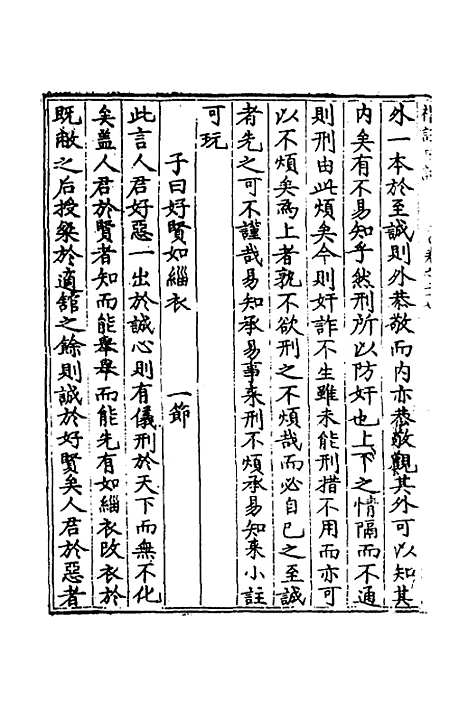 外一本於至誠則外恭敬而內亦恭敬觀其外可以知其
內矣有不易知乎然刑所以防奸也上下之情隔而不通
則刑由此煩矣今則奸詐不生雖未能刑措不用而亦可
以不煩矣為上者孰不欲刑之不煩哉而必自己之至誠
者先之可不謹哉易知承易事来刑不煩承易知来小註
可玩
子曰好賢如緇衣 一節
此言人君好惡一出於誠心則有儀刑於天下而無不化
矣盖人君於賢者知而能舉舉而能先有如緇衣改衣於
既敝之后授粲於適舘之餘則誠於好賢矣人君於惡者